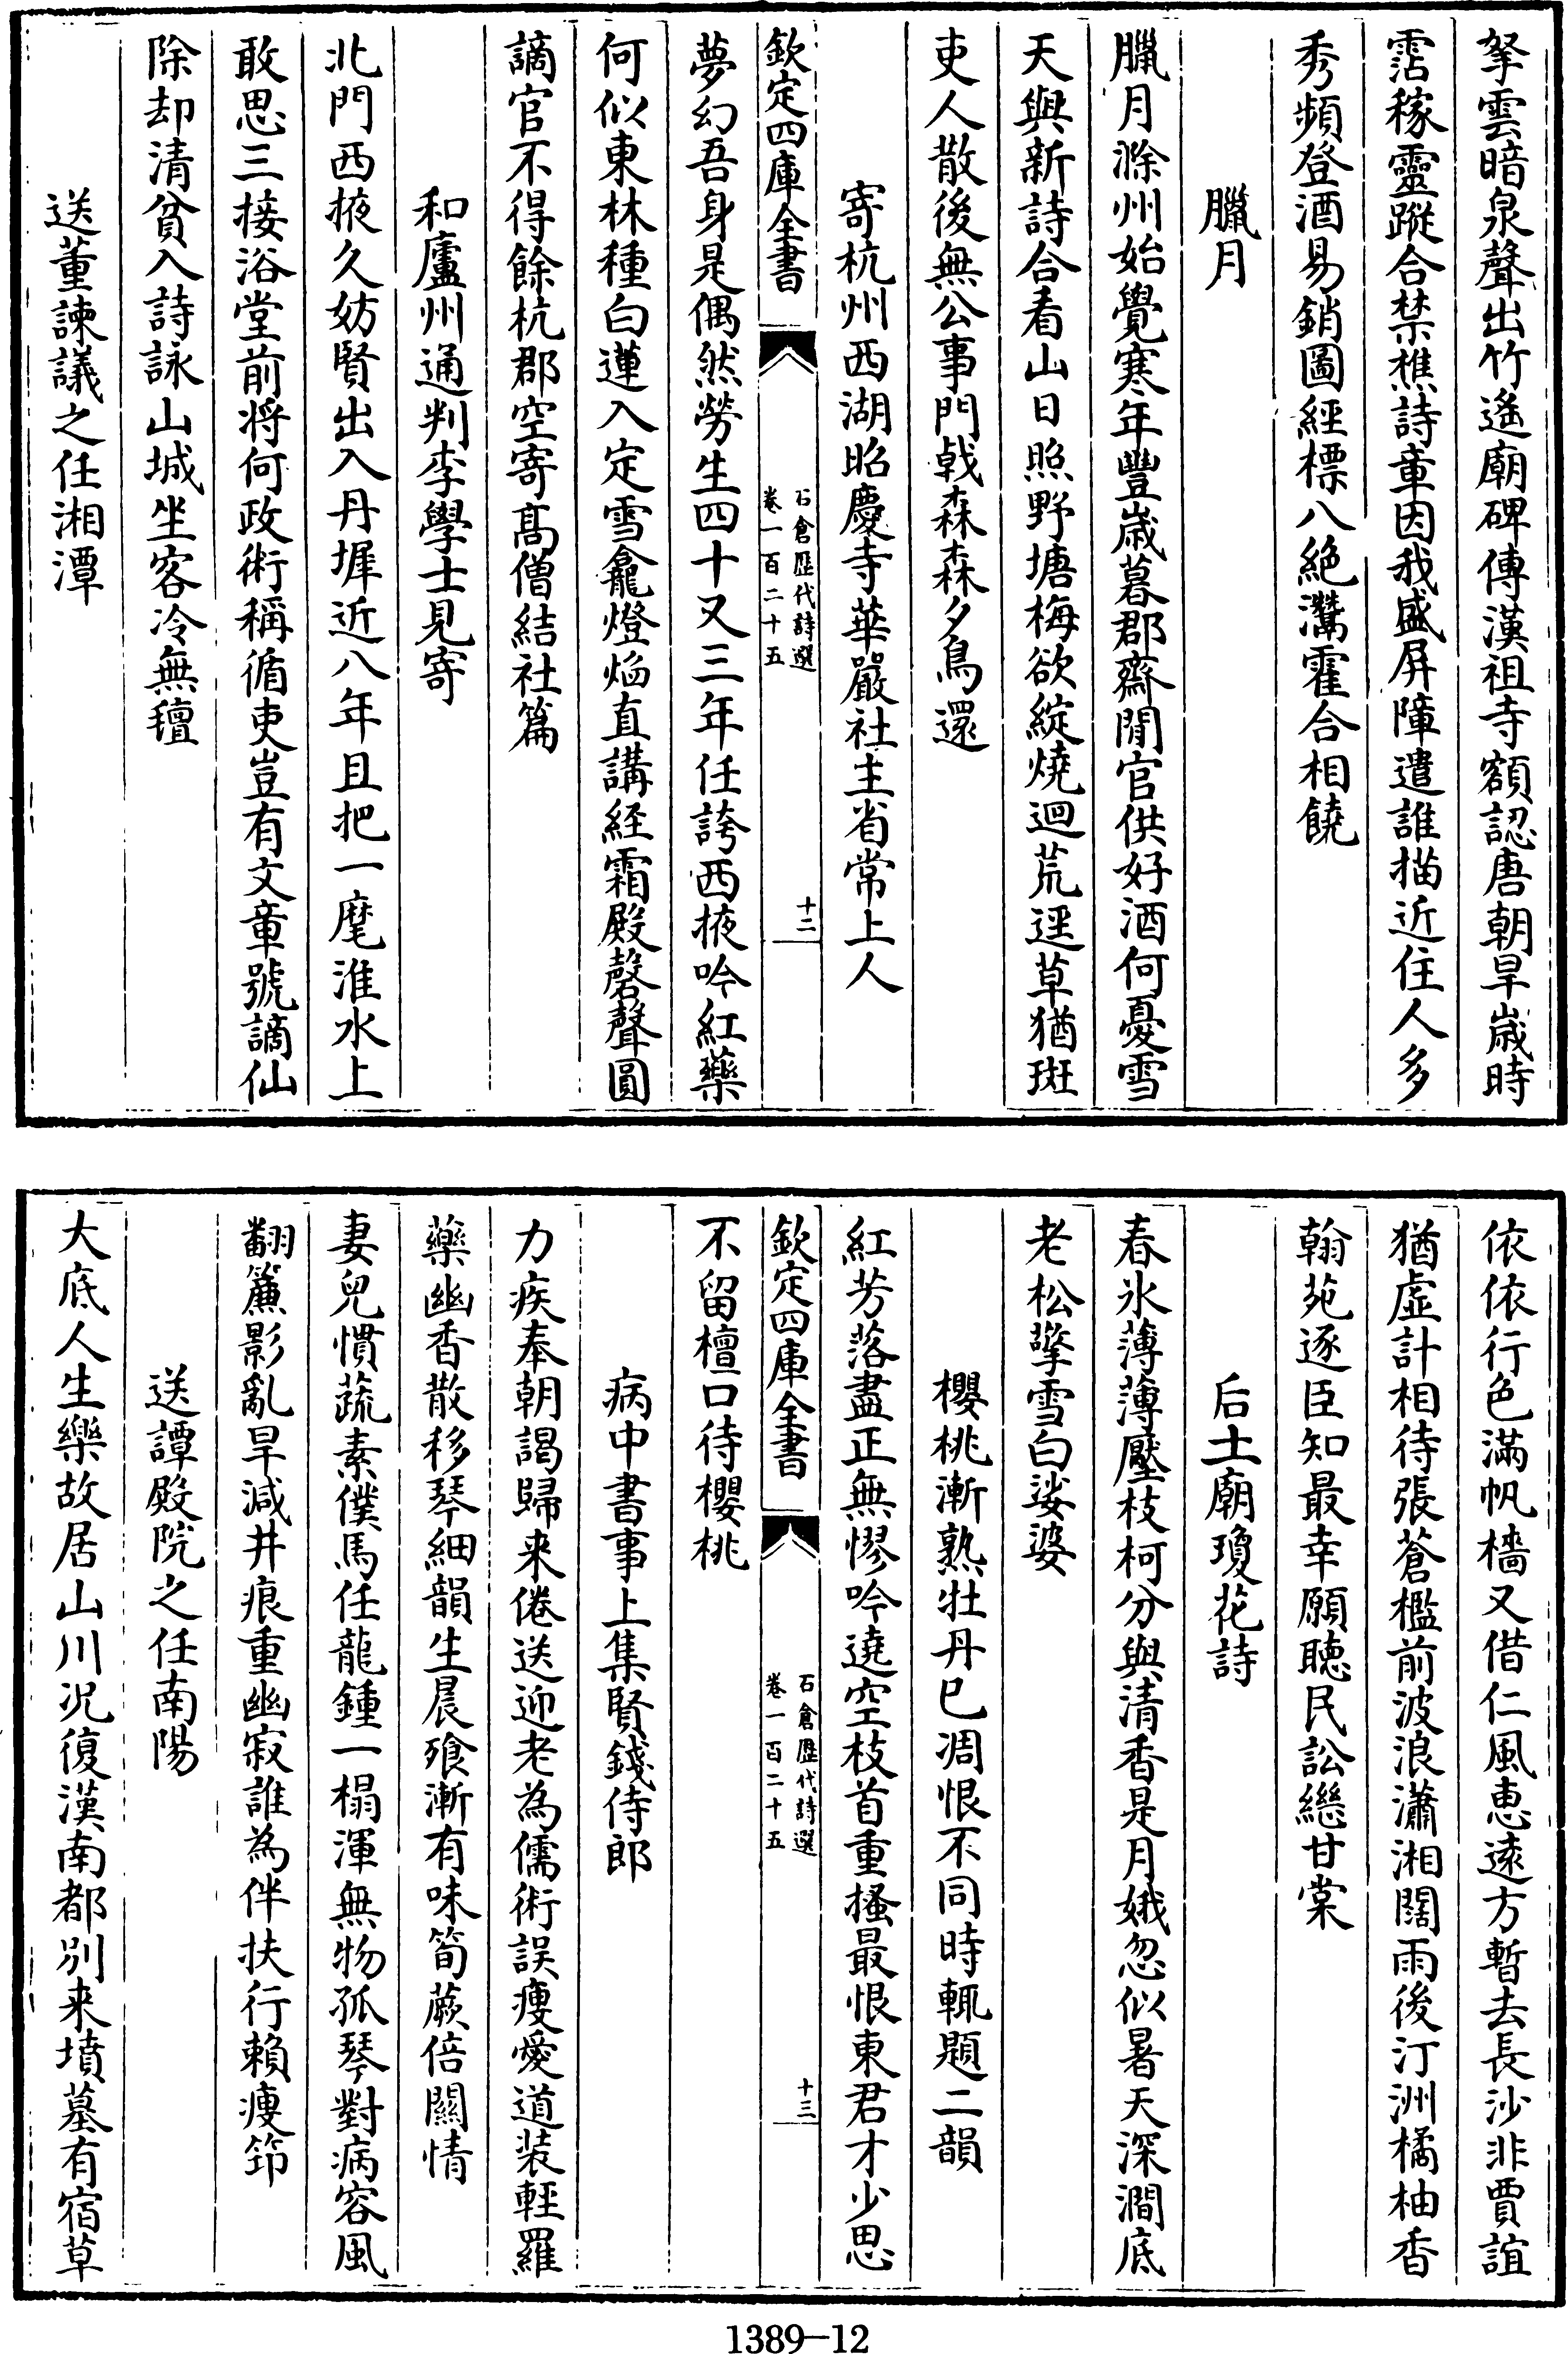 拏雲暗泉聲出竹遙廟碑傳漢祖寺額認唐朝旱歲時
霑稼靈蹤合禁樵詩章因我盛屏障遣誰描近住人多
秀頻登酒易銷圖經標八絶灊霍合相饒
臘月
臘月滁州始覺寒年豐歲暮郡齋閒官供好酒何憂雪
天與新詩合看山日照野塘梅欲綻燒迴荒逕草猶斑
吏人散後無公事門戟森森夕鳥還
寄杭州西湖昭慶寺華嚴社主省常上人
欽定四庫全書
石倉歴代詩選
卷一百二十五
十二
夢幻吾身是偶然勞生四十又三年任誇西掖吟紅藥
何似東林種白蓮入定雪龕燈焰直講経霜殿磬聲圓
謫官不得餘杭郡空寄髙僧結社篇
和廬州通判李學士見寄
北門西掖久妨賢出入丹墀近八年且把一麾淮水上
敢思三接浴堂前将何政術稱循吏豈有文章號謫仙
除却清貧入詩詠山城坐客冷無氊
送董諫議之任湘潭
依依行色滿帆檣又借仁風恵逺方暫去長沙非賈誼
猶虚計相待張蒼檻前波浪瀟湘闊雨後汀洲橘柚香
翰苑逐臣知最幸願聴民訟繼甘棠
后土廟瓊花詩
春氷薄薄壓枝柯分與清香是月娥忽似暑天深澗底
老松擎雪白娑婆
櫻桃漸熟牡丹已凋恨不同時輒題二韻
紅芳落盡正無憀吟遶空枝首重搔最恨東君才少思
欽定四庫全書
石倉歴代詩選
卷一百二十五
十三
不留檀口待櫻桃
病中書事上集賢錢侍郎
力疾奉朝謁歸来倦送迎老為儒術誤痩愛道装輕羅
藥幽香散移琴細韻生晨飱漸有味筍蕨倍關情
妻兒慣蔬素僕馬任龍鍾一榻渾無物孤琴對病容風
翻簾影亂旱減井痕重幽寂誰為伴扶行賴痩筇
送譚殿院之任南陽
大底人生樂故居山川况復漢南都别来墳墓有宿草
1389—12